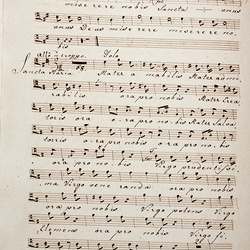 miserere nobis Sancta unus
unus Deus miserere misereno.
bis
allo: troppo Solo
Sancta Maria Mater amabilis Mater admi
rabilis ora pro nobis Mater Crea
toris ora pro nobis Mater Salva
toris ora pro nobis ora pro nobis
ora pro nobis Virgo prudentissi
ma Virgo vene randa ora pro nobis
ora pro nobis Virgo potens Virgo
Clemens ora pro nobis Virgo fi